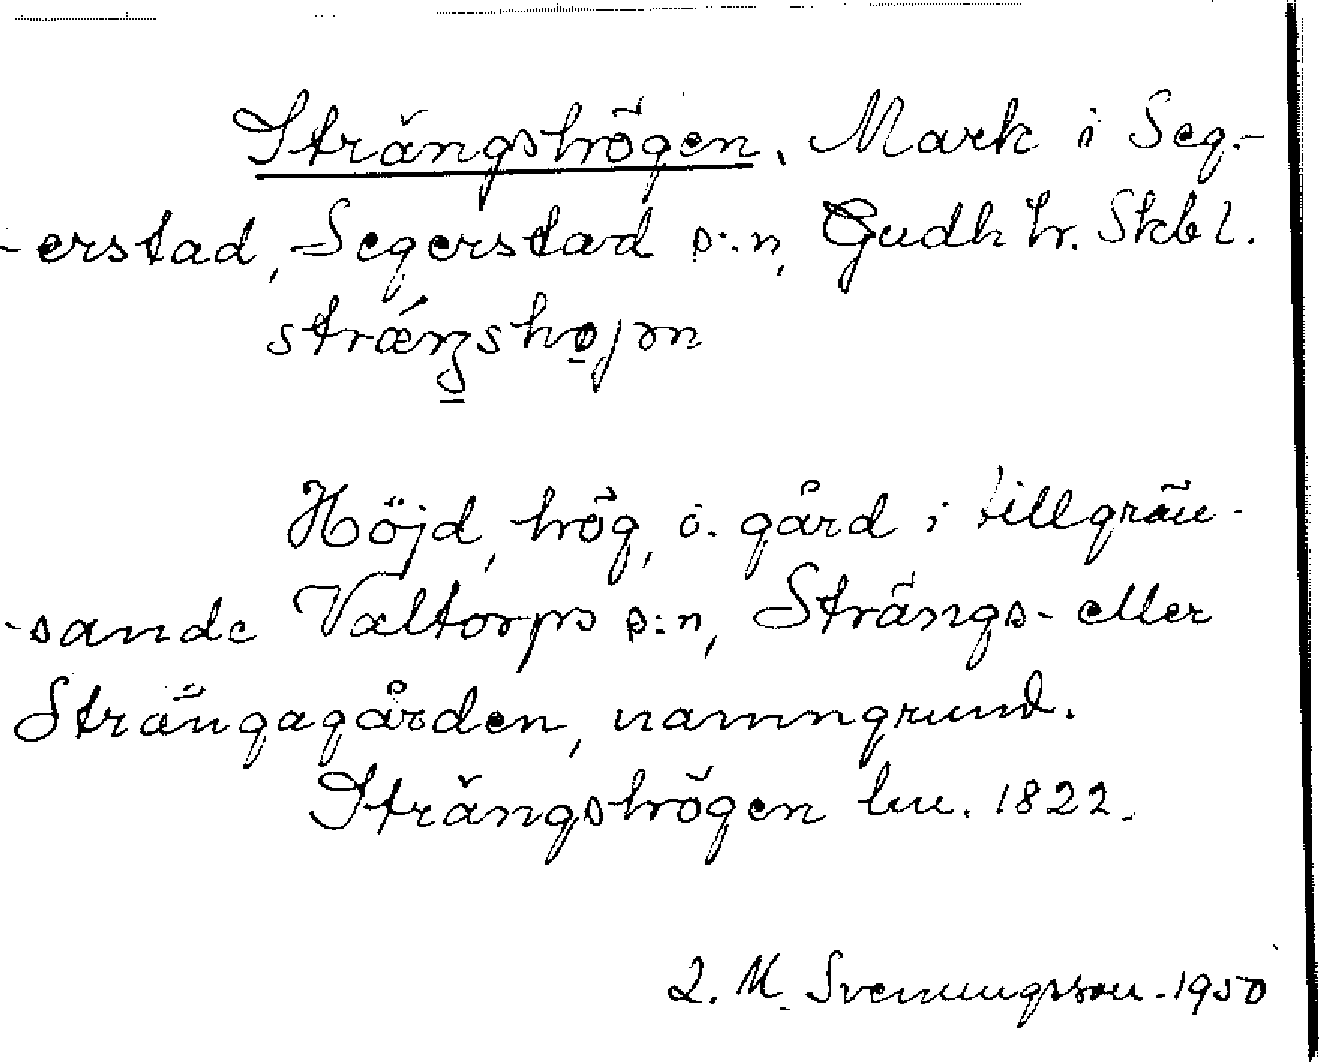 Strängshögen. Mark i Seg-
-erstad, Segerstad s:n, Gudh hr. Skbl.
strǽŋshøjən
Höjd, hög, o. gård i tillgrän-
-sande Valtorps s:n, Strängs- eller
Strängagården, namngrund.
Strängshögen lm. 1822.
L. M. Svenungsson - 1950